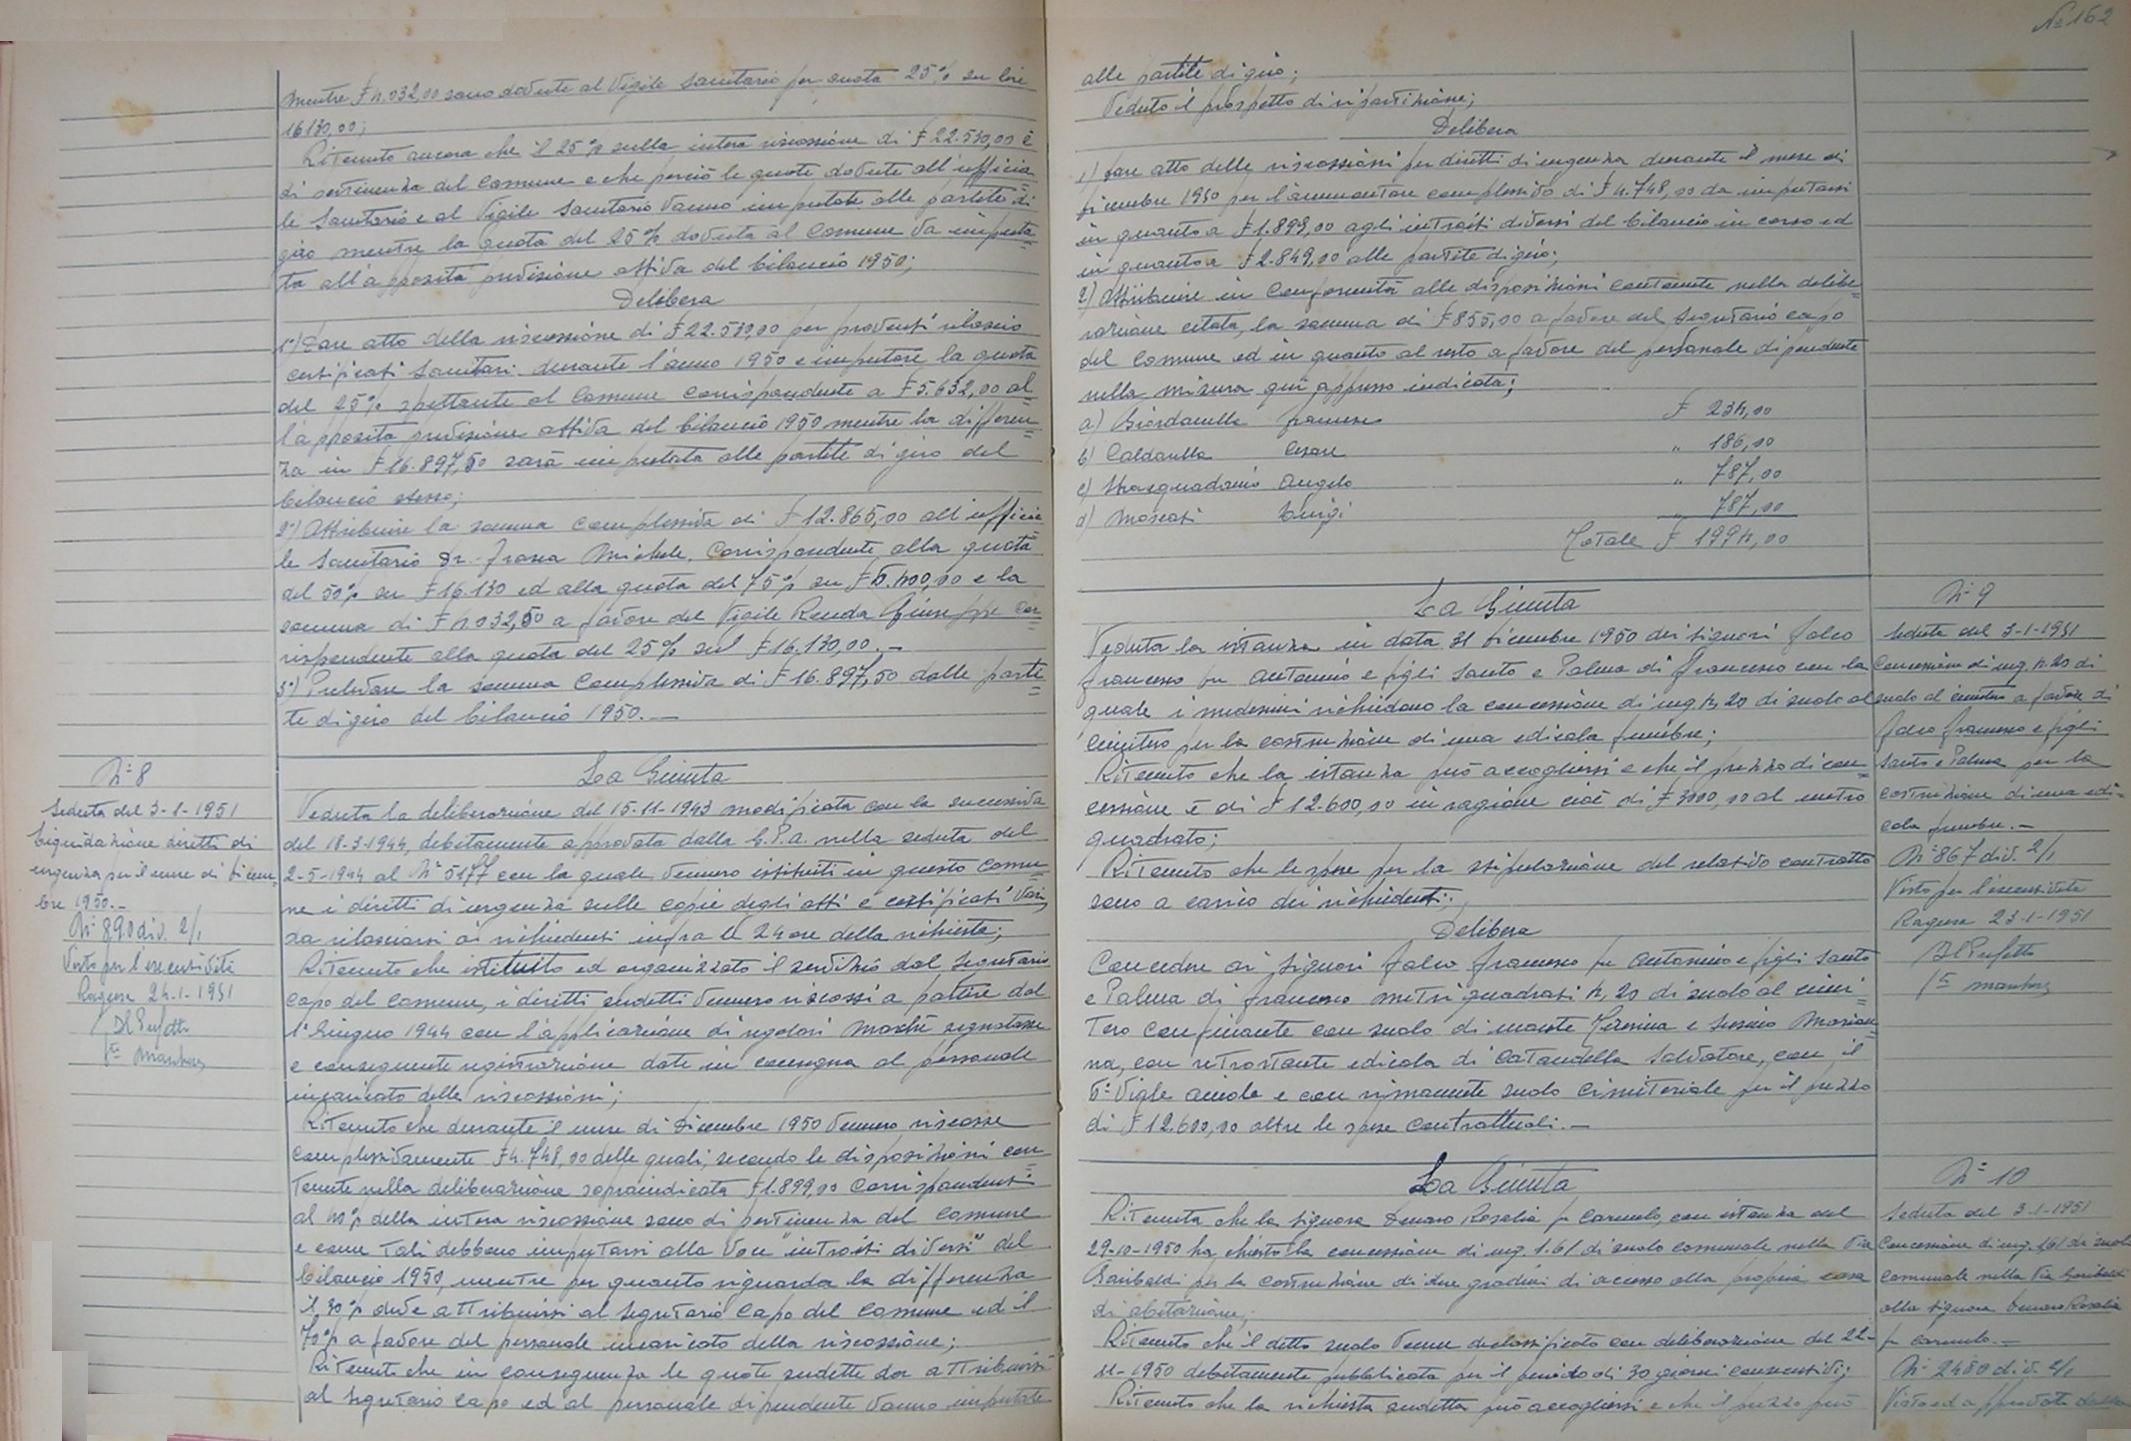 mentre ₤ 4.032,00 sono dovute al Vigile Sanitario per quota 25% su lire
16130,00;
Ritenuto ancora che il 25% sulla intera riscossione di ₤ 22.530,00 è
di pertinenza del Comune e che perciò le quote dovute all'ufficia=
le Sanitario e al Vigile Sanitario vanno imputate alle partite di
giro mentre la quota del 25% dovuta al Comune va imputa=
ta all'apposita previsione attiva del bilancio 1950;
Delibera
1°) Dare atto della riscossione di ₤ 22.530,00 per proventi rilascio
certificati Sanitari durante l'anno 1950 e imputare la quota
del 25% spettante al Comune corrispondente a ₤ 5.632,00 al=
l'apposita previsione attiva del bilancio 1950 mentre la differen=
za in ₤ 16.897,50 sarà imputata alle partite di giro del
bilancio stesso;
2°) Attribuire la somma complessiva di ₤ 12.865,00 all'ufficia
le Sanitario Dr. Michele, corrispondente alla quota
del 50% su ₤ 16.130 ed alla quota del 75% su ₤ 6.400,00 e la
somma di ₤ 4.032,50 a favore del Vigile Renda Giuseppe cor
rispondente alla quota del 25% sul ₤ 16.130,00.-
3°) Prelevare la somma complessiva di ₤ 16.897,50 dalle parti=
te di giro del bilancio 1950.-
N° 8
Seduta del 3-1-1951
Liquidazione diretti di
urgenza per il mese di Dicem=
bre 1950.-
N° 890 div. 2/1
Visto per l'esecutività
Ragusa 24-1-1951
Il Prefetto
La Giunta
Veduta la deliberazione del 15-11-1943 modificata con la successiva
del 18-3-1944, debitamente approvata dalla G.P.A. nella seduta del
2-5-1944 al N° 5177 con la quale vennero istituiti in questo Comu=
ne i diretti di urgenza sulle copie degli atti e certificati vari,
da rilasciarsi ai richiedenti infra le 24 ore della richiesta;
Ritenuto che istituito ed organizzato il servizio dal Segretario
capo del Comune, i diretti sudetti vennero riscossi a partire dal
1° Giugno 1944 con l'applicazione di regolari marche segnatasse
e conseguente registrazione date in consegna al personale
incaricato delle riscossioni;
Ritenuto che durante il mese di Dicembre 1950 vennero riscosse
complessivamente ₤ 4.748,00 delle quali, secondo le disposizioni con
tenute nella deliberazione sopraindicata ₤ 1.899,00 corrispondenti
al 40% della intera riscossione sono di pertinenza del Comune
e come tali debbono imputarsi alla voce "introiti diversi" del
bilancio 1950, mentre per quanto riguarda la differenza
il 30% deve attribuirsi al Segretario Capo del Comune ed il
70% a favore del personale incaricato della riscossione;
Ritenuto che in conseguenza le quote sudette da attribuirsi
al Segretario capo ed al personale dipendente vanno imputate
N° 162
alle partite di giro;
Veduto il prospetto di ripartizione;
Delibera
1) fare atto delle riscossioni per diretti di urgenza durante il mese di
Dicembre 1950 per l'ammontare complessivo di ₤ 4.748,00 da imputarsi
in quanto a ₤ 1.899,00 agli introiti diversi del bilancio in corso ed
in quanto a ₤ 2.849,00 alle partite di giro;
2) Attribuire in conformità alle disposizioni contenute nella delibe=
razione citata, la somma di ₤ 855,00 a favore del Segretario capo
del Comune ed in quanto al resto a favore del personale dipendente
nella misura qui appresso indicata;
a) Giordanella Francesco ₤ 234,00
b) Caldarella Cesare " 186,00
c) Strasquadanio Angelo " 787,00
d) Moscati Luigi " 787,00
Totale ₤ 1994,00
La Giunta
Veduta la istanza in data 31 Dicembre 1950 dei Signori Falco
Francesco fu Antonino e figli Santo e Palma di Francesco con la
quale i medesimi richiedono la concessione di mq. 4,20 di suolo al
Cimitero per la costruzione di una edicola funebre;
Ritenuto che la istanza può accogliersi e che il prezzo di con=
cessione è di ₤ 12.600,00 in ragione cioè di ₤ 3000,00 al metro
quadrato;
Ritenuto che le spese per la stipulazione del relativo contratto
sono a carico dei richiedenti;
Delibera
Concedere ai Signori Falco Francesco fu Antonino e figli Santo
e Palma di Francesco metri quadrati 4,20 di suolo al cimi=
tero confinante con suolo di Teresina e Marian=
na, con retrostante edicola di Cataudella Salvatore, con il
6° Viale e con rimanente suolo cimiteriale per il prezzo
di ₤ 12.600,00 oltre le spese contrattuali.-
N° 9
Seduta del 3-1-1951
Concessione di mq. 4.20 di
suolo al cimitero a favore di
Falco Francesco e figli
Santo e Palma per la
costruzione di una edi=
cola funebre.-
N° 867 div. 2/1
Visto per l'esecutività
Ragusa 23-1-1951
Il Prefetto
La Giunta
Ritenuta che la Signora Denaro Rosalia fu Carmelo, con istanza del
29-10-1950 ha chiesto la concessione di mq. 1.61 di suolo comunale nella Via
Garibaldi per la costruzione di due gradini di accesso alla propria casa
di abitazione;
Ritenuto che il detto suolo venne declassificato con deliberazione del 22-
11-1950 debitamente pubblicata per il periodo di 30 giorni consecutivi;
Ritenuto che la richiesta sudetta può accogliersi e che il prezzo può
N° 10
Seduta del 3-1-1951
Concessione di mq. 1,61 di suolo
comunale nella Via Garibaldi
alla Signora Denaro Rosalia
fu Carmelo.-
N° 2480 div. 2/1
Vista ed approvata dalla